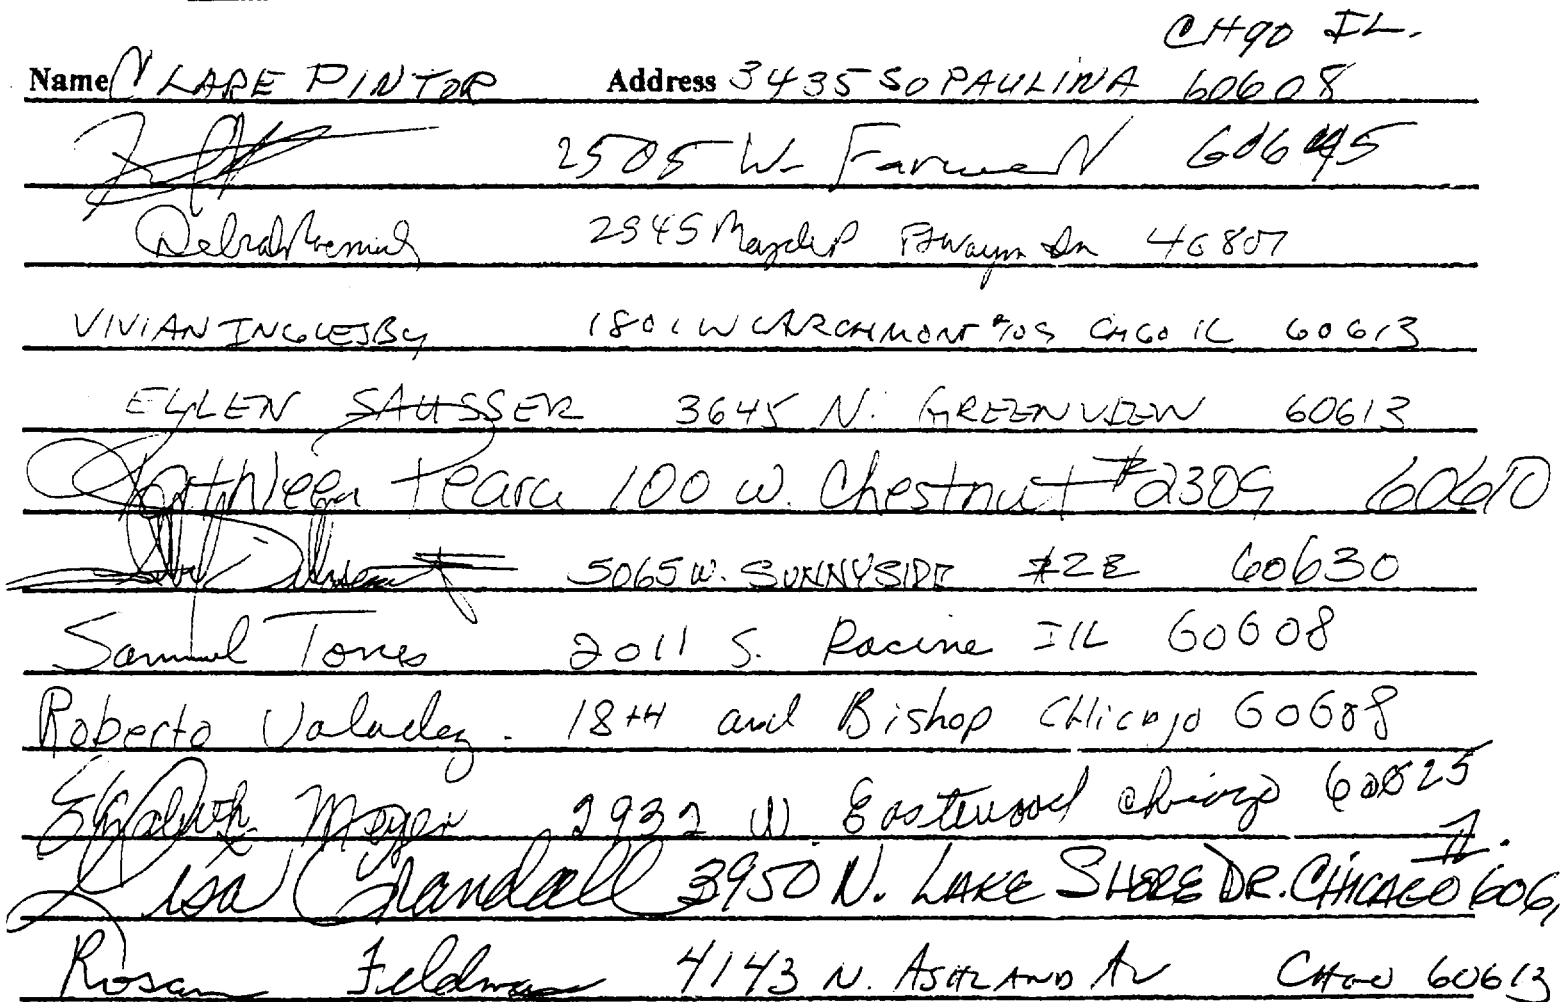 CHgo IL.
Name CLARE PINTOR Address 3435 SO PAULINA 60608
2505 W. Farwell 60645
Debrah 2945 Ft Wayne In 46807
VIVIAN INGLESBY 1801 W LARCHMONT CHGO IL 60613
EYLEN SAUSSER 3645 N. GREENVIEW 60613
Kathleen 100 W. Chestnut #2309 60610
5065 W. SUNNYSIDE #2E 60630
Samuel Torres 2011 S. Racine Ill 60608
Roberto Valadez. 18tH and Bishop CHicago 60608
Elizabeth Moyer 2932 W Eastwood Chicago 60625
Lisa Crandall 3950 N. LAKE SHORE DR. CHICAGO IL. 606
Feldman 4143 N. ASHLAND AV CHGO 60613